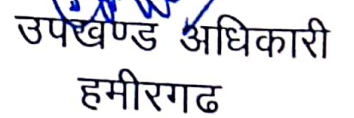 उपखण्ड अधिकारी
हमीरगढ